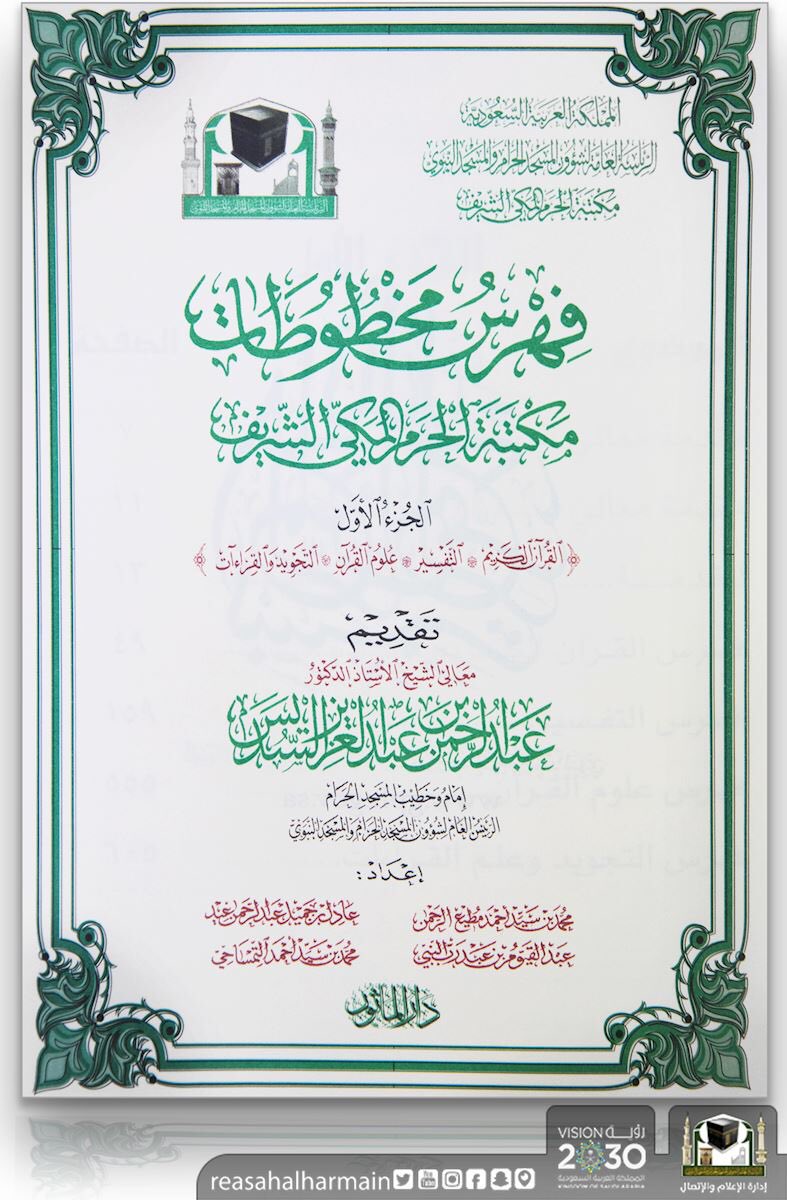 المملكة العربية السعودية
الرئاسة العامة لشؤون المسجد الحرام والمسجد النبوي
مكتبة الحرم المكي الشريف
الرئاسة العامة لشؤون المسجد الحرام والمسجد النبوي
فِهْرِسُ مَخْطُوطَات
مَكْتَبَةِ الْحَرَمِ الْمَكِّيِّ الشَّرِيْف
الجُزْءُ الأوَّل
القُرْآن الكَرِيْم * التَّفْسِيْر * عُلُومُ القُرْآن * التَّجْوِيد وَالقِرَاءَات
تَقْدِيْم
مَعَالِي الشَّيْخِ الأُسْتَاذِ الدُّكْتُور
عَبْدِ الرَّحْمٰنِ بْنِ عَبْدِ العَزِيزِ السُّدَيْس
إِمَام وَخَطِيْب المَسْجِدِ الحَرَام
الرَّئِيْس العَام لِشُؤُوْنِ المَسْجِدِ الحَرَام وَالمَسْجِدِ النَّبَوِي
إِعْدَاد:
محمد بن سيد أحمد مطيع الرحمن
عادل بن جميل عبد الرحمن عيد
عبد القيوم بن عبد رب النبي
محمد بن سيد أحمد التمساحي
دار المأثور
reasahalharmain
You Tube
VISION رؤيــة
2030
المملكة العربية السعودية
KINGDOM OF SAUDI ARABIA
إدارة الإعلام والإتصال